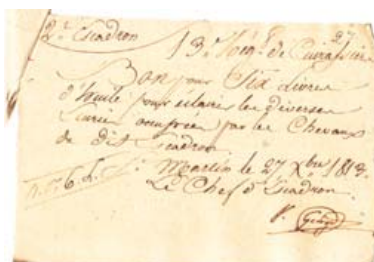 2e Escadron
27
13e Régt de Cuirassiers
Bon pour Six Livres
d'huile pour éclairer les diverses
Ecuries occupées par les Chevaux
de dit Escadron
n.° 6. St Martin le 27 Xbre 1813.
Le Chef d'Escadron